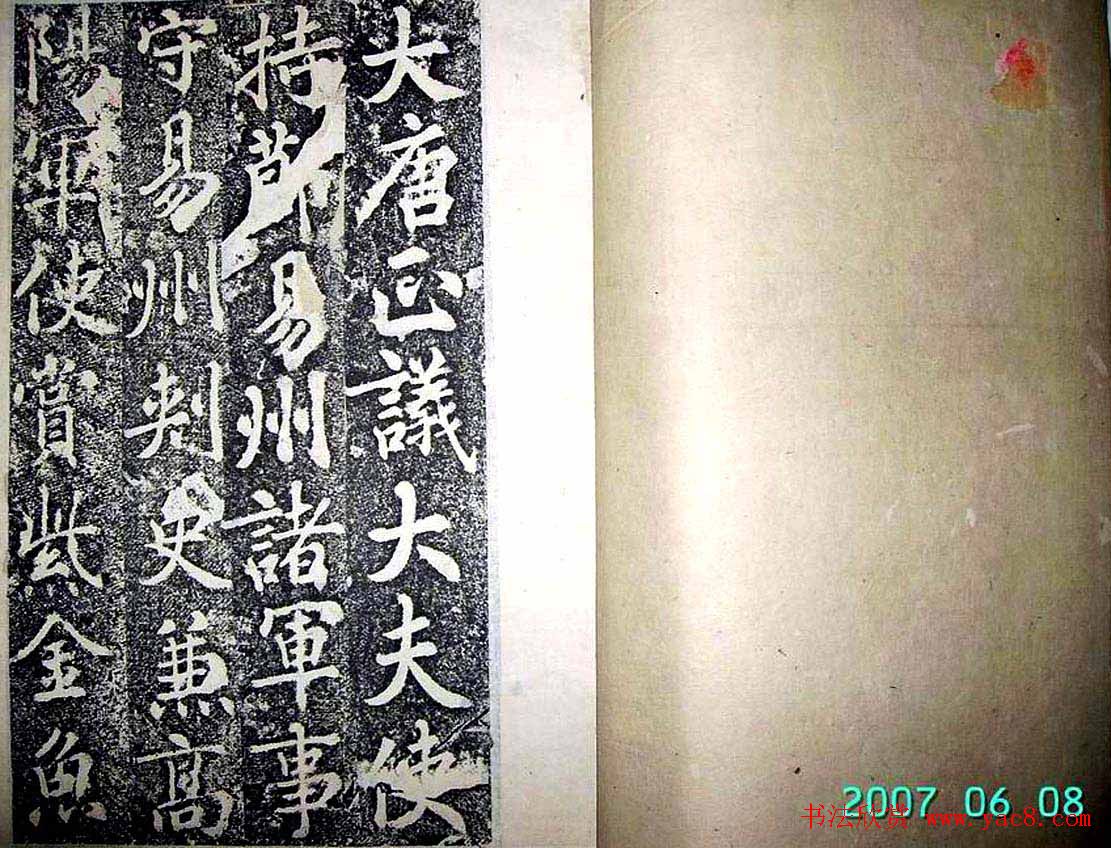 大唐正議大夫使
持節易州諸軍事
守易州刺史兼高
陽軍使賞紫金魚
2007 06 08
书法欣赏 www.yac8.com